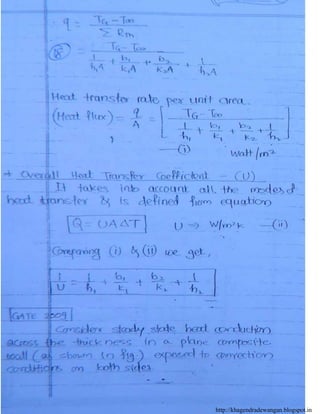 q = TG - T∞
Σ Rth
Q = TG - T∞
1/h1A + b1/k1A + b2/k2A + 1/h2A
Heat transfer rate per unit area.
(Heat flux) = q/A = [ TG - T∞ / 1/h1 + b1/k1 + b2/k2 + 1/h2 ]
—(i) Watt/m²
+ Overall Heat Transfer Coefficient - (U)
It takes into account all the modes of
heat transfer & is defined from equation
Q = UAΔT U ⇒ W/m²K —(ii)
Comparing (i) & (ii) we get,
1/U = 1/h1 + b1/k1 + b2/k2 + 1/h2
GATE 2009
Consider steady state heat conduction
across the thickness in a plane composite
wall (as shown in fig.) exposed to convection
conditions on both sides.
http://khagendradewangan.blogspot.in